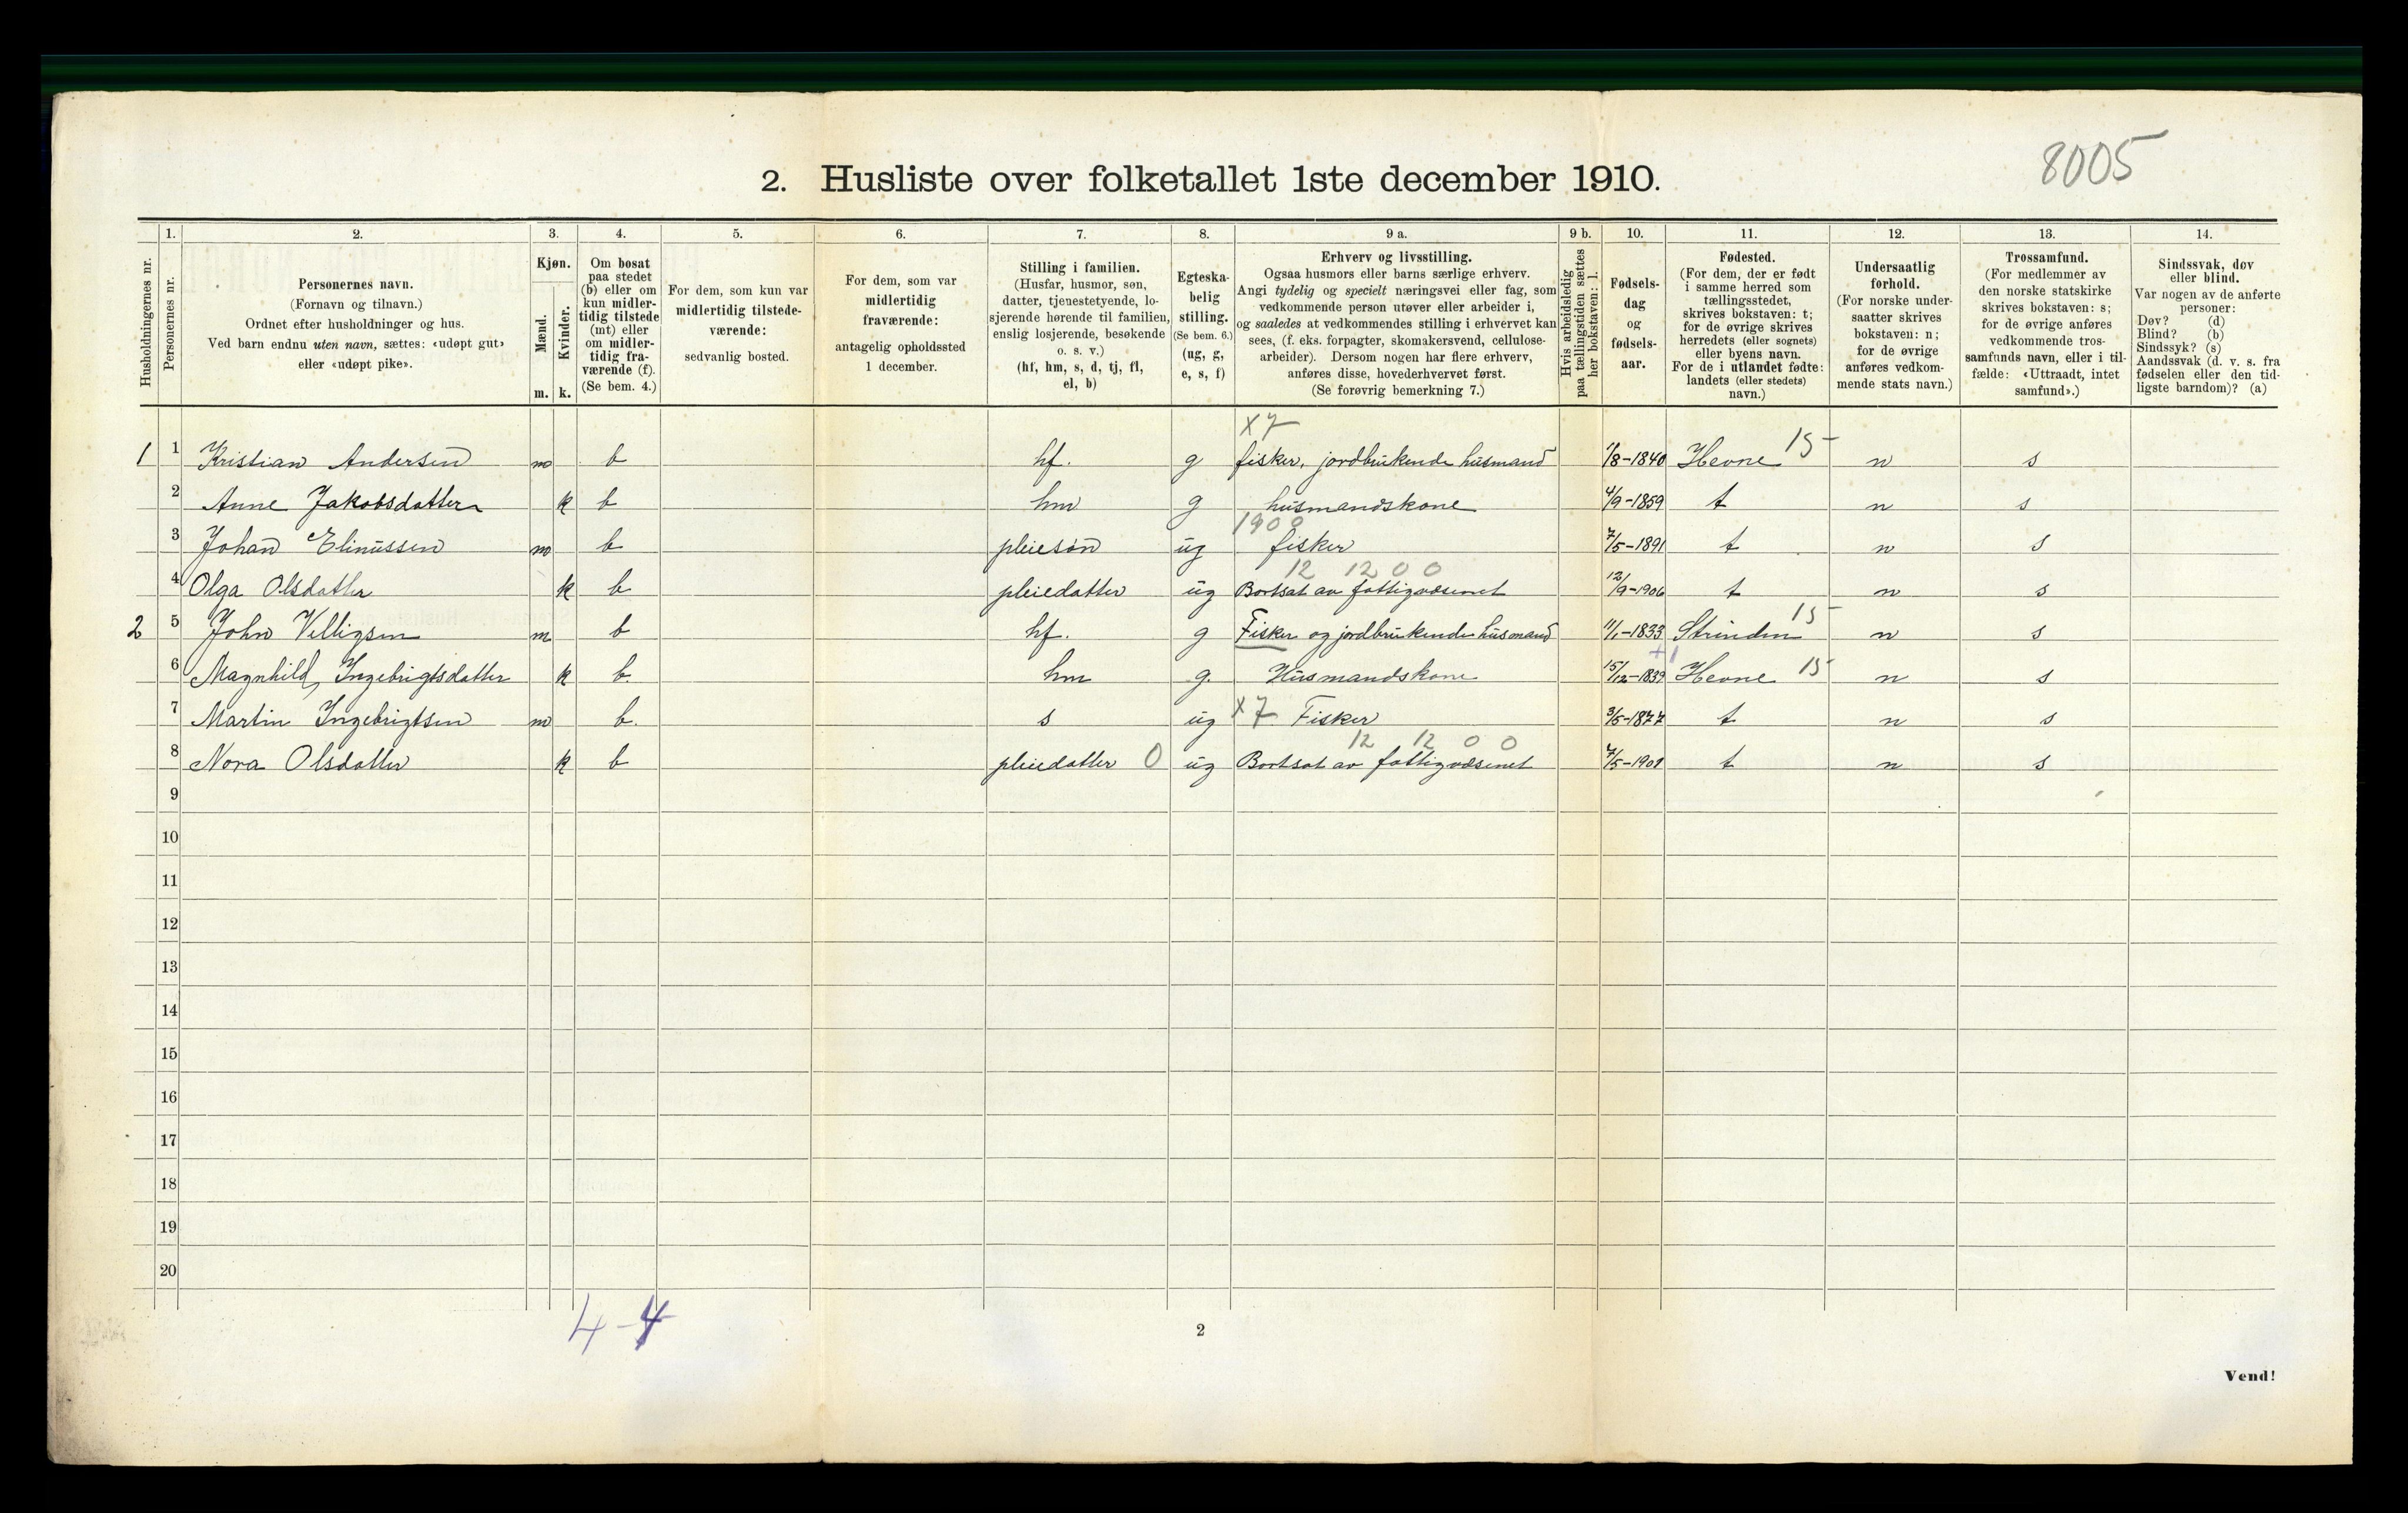 8005
2. Husliste over folketallet 1ste december 1910.
Husholdningernes nr.
1.
Personernes nr.
2.
Personernes navn.
(Fornavn og tilnavn.)
Ordnet efter husholdninger og hus.
Ved barn endnu uten navn, sættes: «udøpt gut»
eller «udøpt pike».
3.
Kjøn.
Mænd.
Kvinder.
m. k.
4.
Om bosat
paa stedet
(b) eller om
kun midler-
tidig tilstede
(mt) eller
om midler-
tidig fra-
værende (f).
(Se bem. 4.)
5.
For dem, som kun var
midlertidig tilstede-
værende:
sedvanlig bosted.
6.
For dem, som var
midlertidig
fraværende:
antagelig opholdssted
1 december.
7.
Stilling i familien.
(Husfar, husmor, søn,
datter, tjenestetyende, lo-
sjerende hørende til familien,
enslig losjerende, besøkende
o. s. v.)
(hf, hm, s, d, tj, fl,
el, b)
8.
Egteska-
belig
stilling.
(Se bem. 6.)
(ug, g,
e, s, f)
9 a.
Erhverv og livsstilling.
Ogsaa husmors eller barns særlige erhverv.
Angi tydelig og specielt næringsvei eller fag, som
vedkommende person utøver eller arbeider i,
og saaledes at vedkommendes stilling i erhvervet kan
sees, (f. eks. forpagter, skomakersvend, cellulose-
arbeider). Dersom nogen har flere erhverv,
anføres disse, hovederhvervet først.
(Se forøvrig bemerkning 7.)
9 b.
Hvis arbeidsledig
paa tællingstiden sættes
her bokstaven: l.
10.
Fødsels-
dag
og
fødsels-
aar.
11.
Fødested.
(For dem, der er født
i samme herred som
tællingsstedet,
skrives bokstaven: t;
for de øvrige skrives
herredets (eller sognets)
eller byens navn.
For de i utlandet fødte:
landets (eller stedets)
navn.)
12.
Undersaatlig
forhold.
(For norske under-
saatter skrives
bokstaven: n;
for de øvrige
anføres vedkom-
mende stats navn.)
13.
Trossamfund.
(For medlemmer av
den norske statskirke
skrives bokstaven: s;
for de øvrige anføres
vedkommende tros-
samfunds navn, eller i til-
fælde: «Uttraadt, intet
samfund».)
14.
Sindssvak, døv
eller blind.
Var nogen av de anførte
personer:
Døv? (d)
Blind? (b)
Sindssyk? (s)
Aandssvak (d. v. s. fra
fødselen eller den tid-
ligste barndom)? (a)
x 7
1 1 Kristian Andersen m b hf. g fisker, jordbrukende husmand 1/8-1840 Hevne 15 n s
2 Anne Jakobsdatter k b hm g husmandskone 4/9-1859 t n s
1900
3 Johan Elinussen m b pleiesøn ug fisker 7/5-1891 t n s
12 12 0 0
4 Olga Olsdatter k b pleiedatter ug Bortsat av fattigvæsenet 12/9-1906 t n s
2 5 John Velligsen m b hf. g Fisker og jordbrukende husmand 11/1-1833 Strinden 15 n s
6 Magnhild Ingebrigtsdatter k b. hm g. Husmandskone 15/12-1839 Hevne 15 n s
7 Martin Ingebrigtsen m b. s ug x 7 Fisker 3/5-1877 t n s
12 12 0 0
8 Nora Olsdatter k b pleiedatter 0 ug Bortsat av fattigvæsenet 7/5-1901 t n s
9
10
11
12
13
14
15
16
17
18
19
20
4-4
2
Vend!